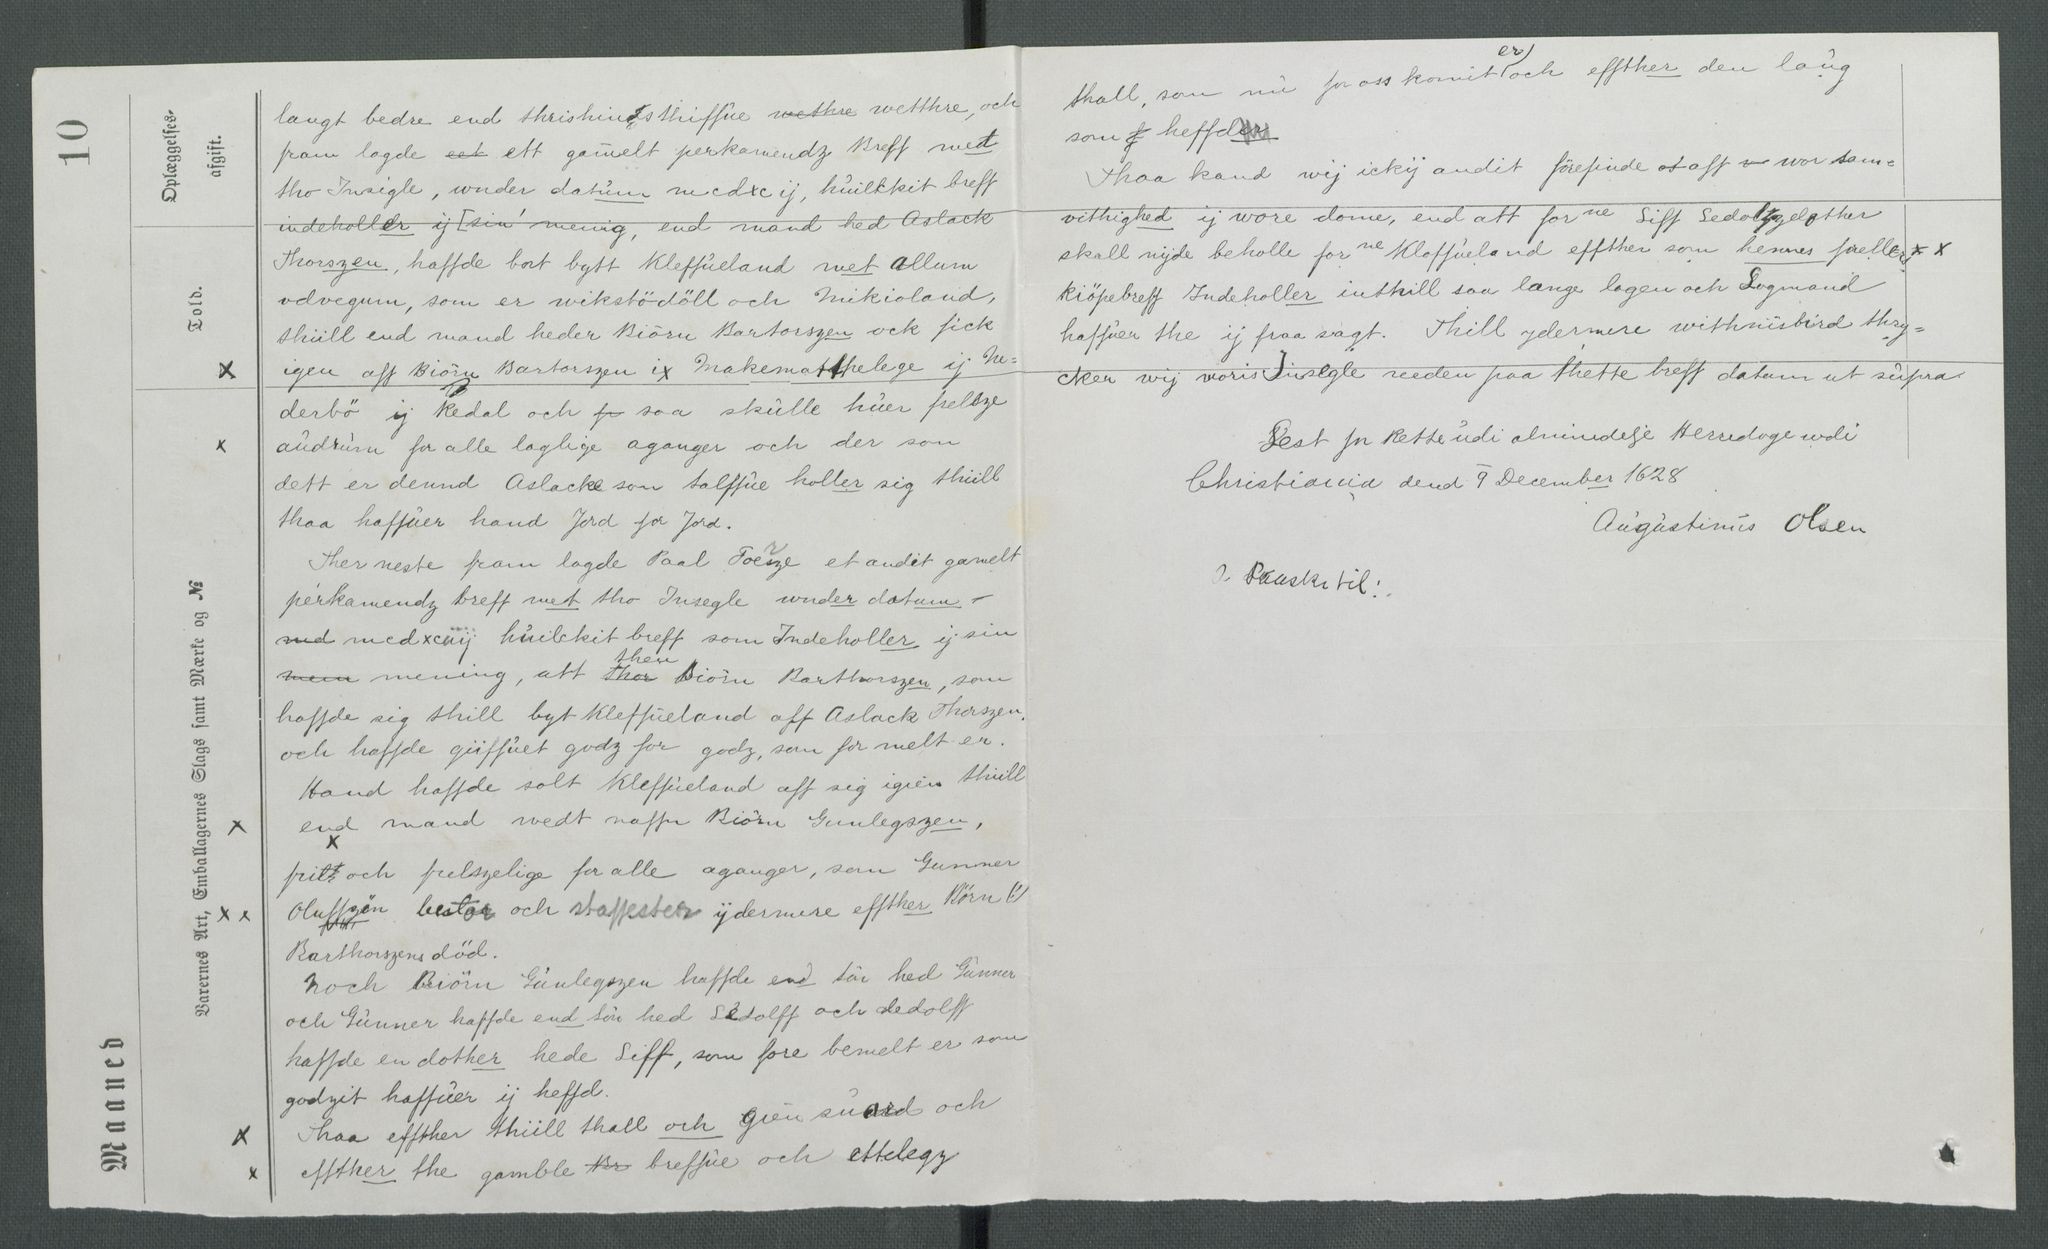 10
Oplæggelses-
afgift.
Told.
Varernes Art, Emballagernes Slags samt Mærke og №
Maaned
langt bedre end thrishindsthiffüe wethre wetthre, och
fram lagde eet ett gamelt perkamendz Breff met
tho Insigle, wnder datüm mcdxcij, hüilckit breff
indeholler ij [sin' menig, end mand hed Aslack
Thorszen, haffde bort bytt Kleffüeland met allum
vdvegum, som er wikstödöll och Mikioland,
thiill end mand heder Biörn Bartorszen ock fick
igen aff Biörn Bartorszen ix Makematthelege ij Ne=
derbö ij Kedal och fr saa skülle hüer frelsze
andrüm for alle laglige aganger och der som
dett er dennd Aslacke som salffüe holler sig thiill
thaa haffüer hand Jord for Jord.
Ther neste fram lagde Paal Toersze et andit gamelt
perkamendz breff met tho Insegle wnder datum
md mcdxciiij hüilckit breff som Indeholler ij sin
mem mening, att Thor then Biörn Barthorszen, som
haffde sig thill byt Kleffüeland aff Aslack Thorszen,
och haffde giiffüet godz for godz, som for melt er.
Hand haffde solt Kleffüeland aff sig igien thiill
end mand wedt naffn Biörn Gunlegszen,
frit och frelszelige for alle aganger, som Gunner
Oluffzön bestar och staffester ijdermere effther Börn (i)
Barthorszens död.
Noch Biörn Günlegszen haffde end sön hed Günner
och Günner haffde end sön hed Sedolff och Sedolff
haffde en dother hede Siff, som fore bemelt er som
godzit haffüer ij heffd.
Thaa effther thiill thall och gien süard och
effther the gamble Br breffüe och ettelegz
thall, som nü for oss komit er) och effther den laüg
som f heffder
Thaa kand wij ickij andit förefinde at aff w wor sam=
vithighed ij wore dome, end att for ne Siff Sedolffzdother
skall nijde beholle for ne Kloffüeland effther som hennes forellers x x
kiöpebreff Indeholler inthill saa lange lagen och Logmand
haffüer the ij fraa sagt. Thill ydermere withniisbird thry=
cker wij woris Insegle needen paa thette breff datüm ut süpra.
Lest for Rette üdi almindelje Herredage wdi
Christiania dend 9 December 1628
Aügüstinüs Olsen